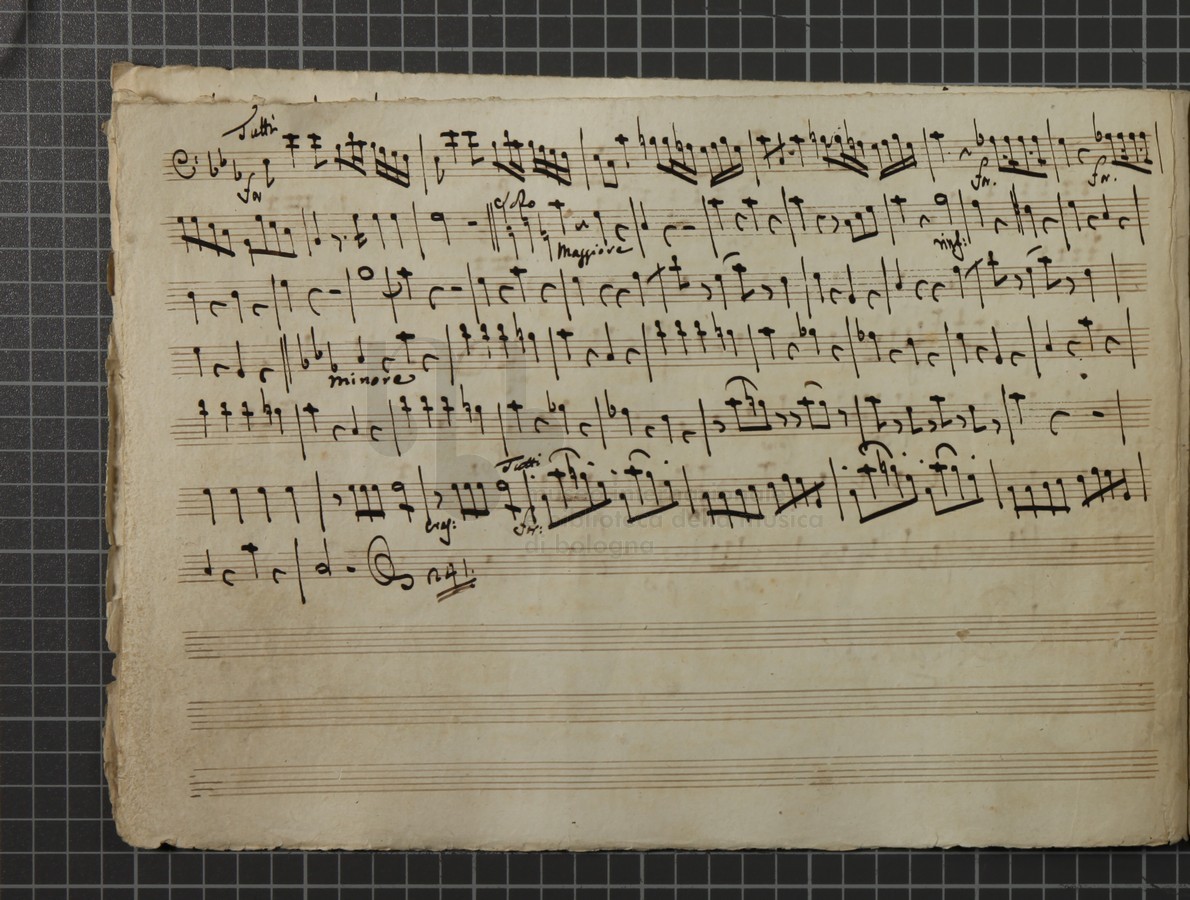 Tutti
fn
fn.
fn.
Solo
Maggiore
rinf:
minore
Tutti
cres:
fn:
biblioteca della musica
di bologna